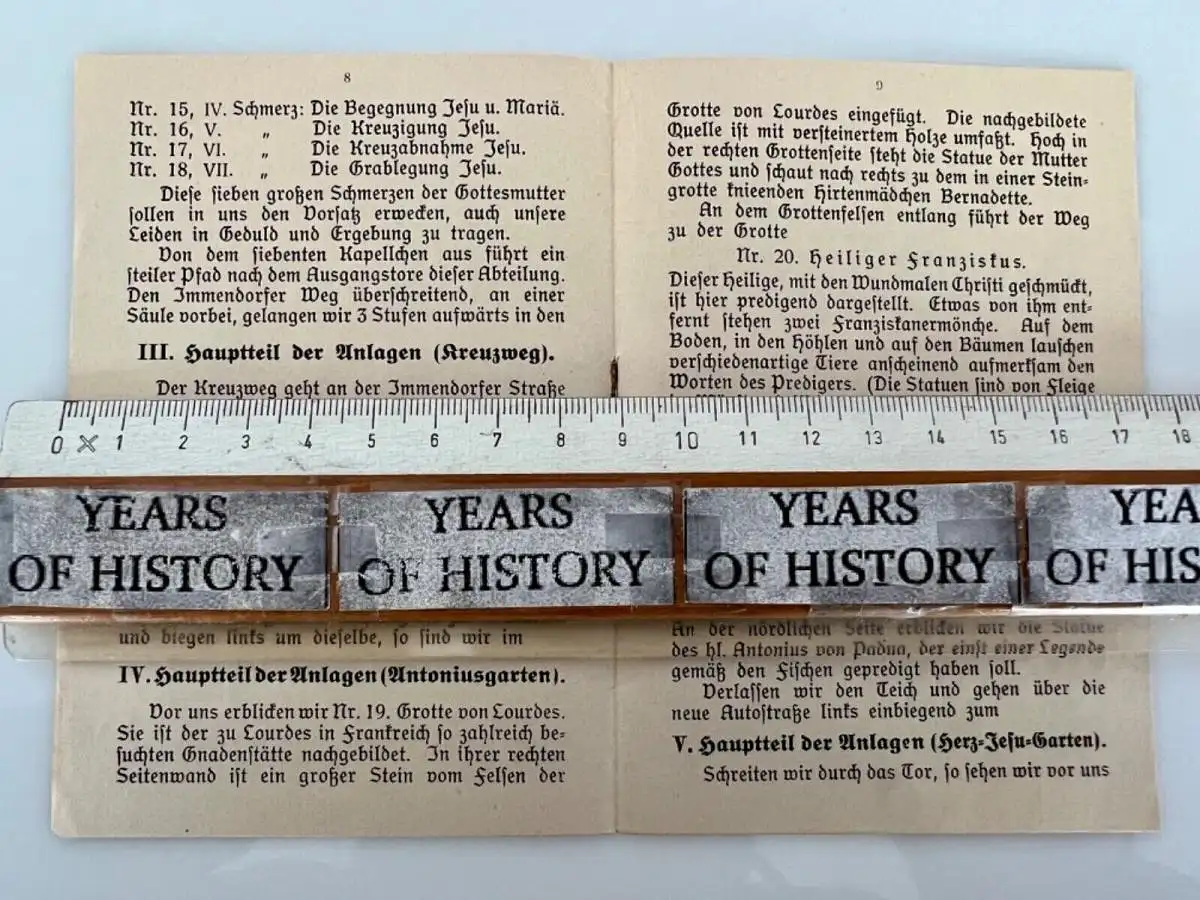 8
Nr. 15, IV. Schmerz: Die Begegnung Jesu u. Mariä.
Nr. 16, V. „ Die Kreuzigung Jesu.
Nr. 17, VI. „ Die Kreuzabnahme Jesu.
Nr. 18, VII. „ Die Grablegung Jesu.
Diese sieben großen Schmerzen der Gottesmutter
sollen in uns den Vorsatz erwecken, auch unsere
Leiden in Geduld und Ergebung zu tragen.
Von dem siebenten Kapellchen aus führt ein
steiler Pfad nach dem Ausgangstore dieser Abteilung.
Den Immendorfer Weg überschreitend, an einer
Säule vorbei, gelangen wir 3 Stufen aufwärts in den
III. Hauptteil der Anlagen (Kreuzweg).
Der Kreuzweg geht an der Immendorfer Straße
und biegen links um dieselbe, so sind wir im
IV. Hauptteil der Anlagen (Antoniusgarten).
Vor uns erblicken wir Nr. 19. Grotte von Lourdes.
Sie ist der zu Lourdes in Frankreich so zahlreich be-
suchten Gnadenstätte nachgebildet. In ihrer rechten
Seitenwand ist ein großer Stein vom Felsen der
9
Grotte von Lourdes eingefügt. Die nachgebildete
Quelle ist mit versteinertem Holze umfaßt. Hoch in
der rechten Grottenseite steht die Statue der Mutter
Gottes und schaut nach rechts zu dem in einer Stein-
grotte knieenden Hirtenmädchen Bernadette.
An dem Grottenfelsen entlang führt der Weg
zu der Grotte
Nr. 20. Heiliger Franziskus.
Dieser Heilige, mit den Wundmalen Christi geschmückt,
ist hier predigend dargestellt. Etwas von ihm ent-
fernt stehen zwei Franziskanermönche. Auf dem
Boden, in den Höhlen und auf den Bäumen lauschen
verschiedenartige Tiere anscheinend aufmerksam den
Worten des Predigers. (Die Statuen sind von Fleige
An der nördlichen Seite erblicken wir die Statue
des hl. Antonius von Padua, der einst einer Legende
gemäß den Fischen gepredigt haben soll.
Verlassen wir den Teich und gehen über die
neue Autostraße links einbiegend zum
V. Hauptteil der Anlagen (Herz-Jesu-Garten).
Schreiten wir durch das Tor, so sehen wir vor uns
0 1 2 3 4 5 6 7 8 9 10 11 12 13 14 15 16 17 18
YEARS YEARS YEARS YEA
OF HISTORY OF HISTORY OF HISTORY OF HIS